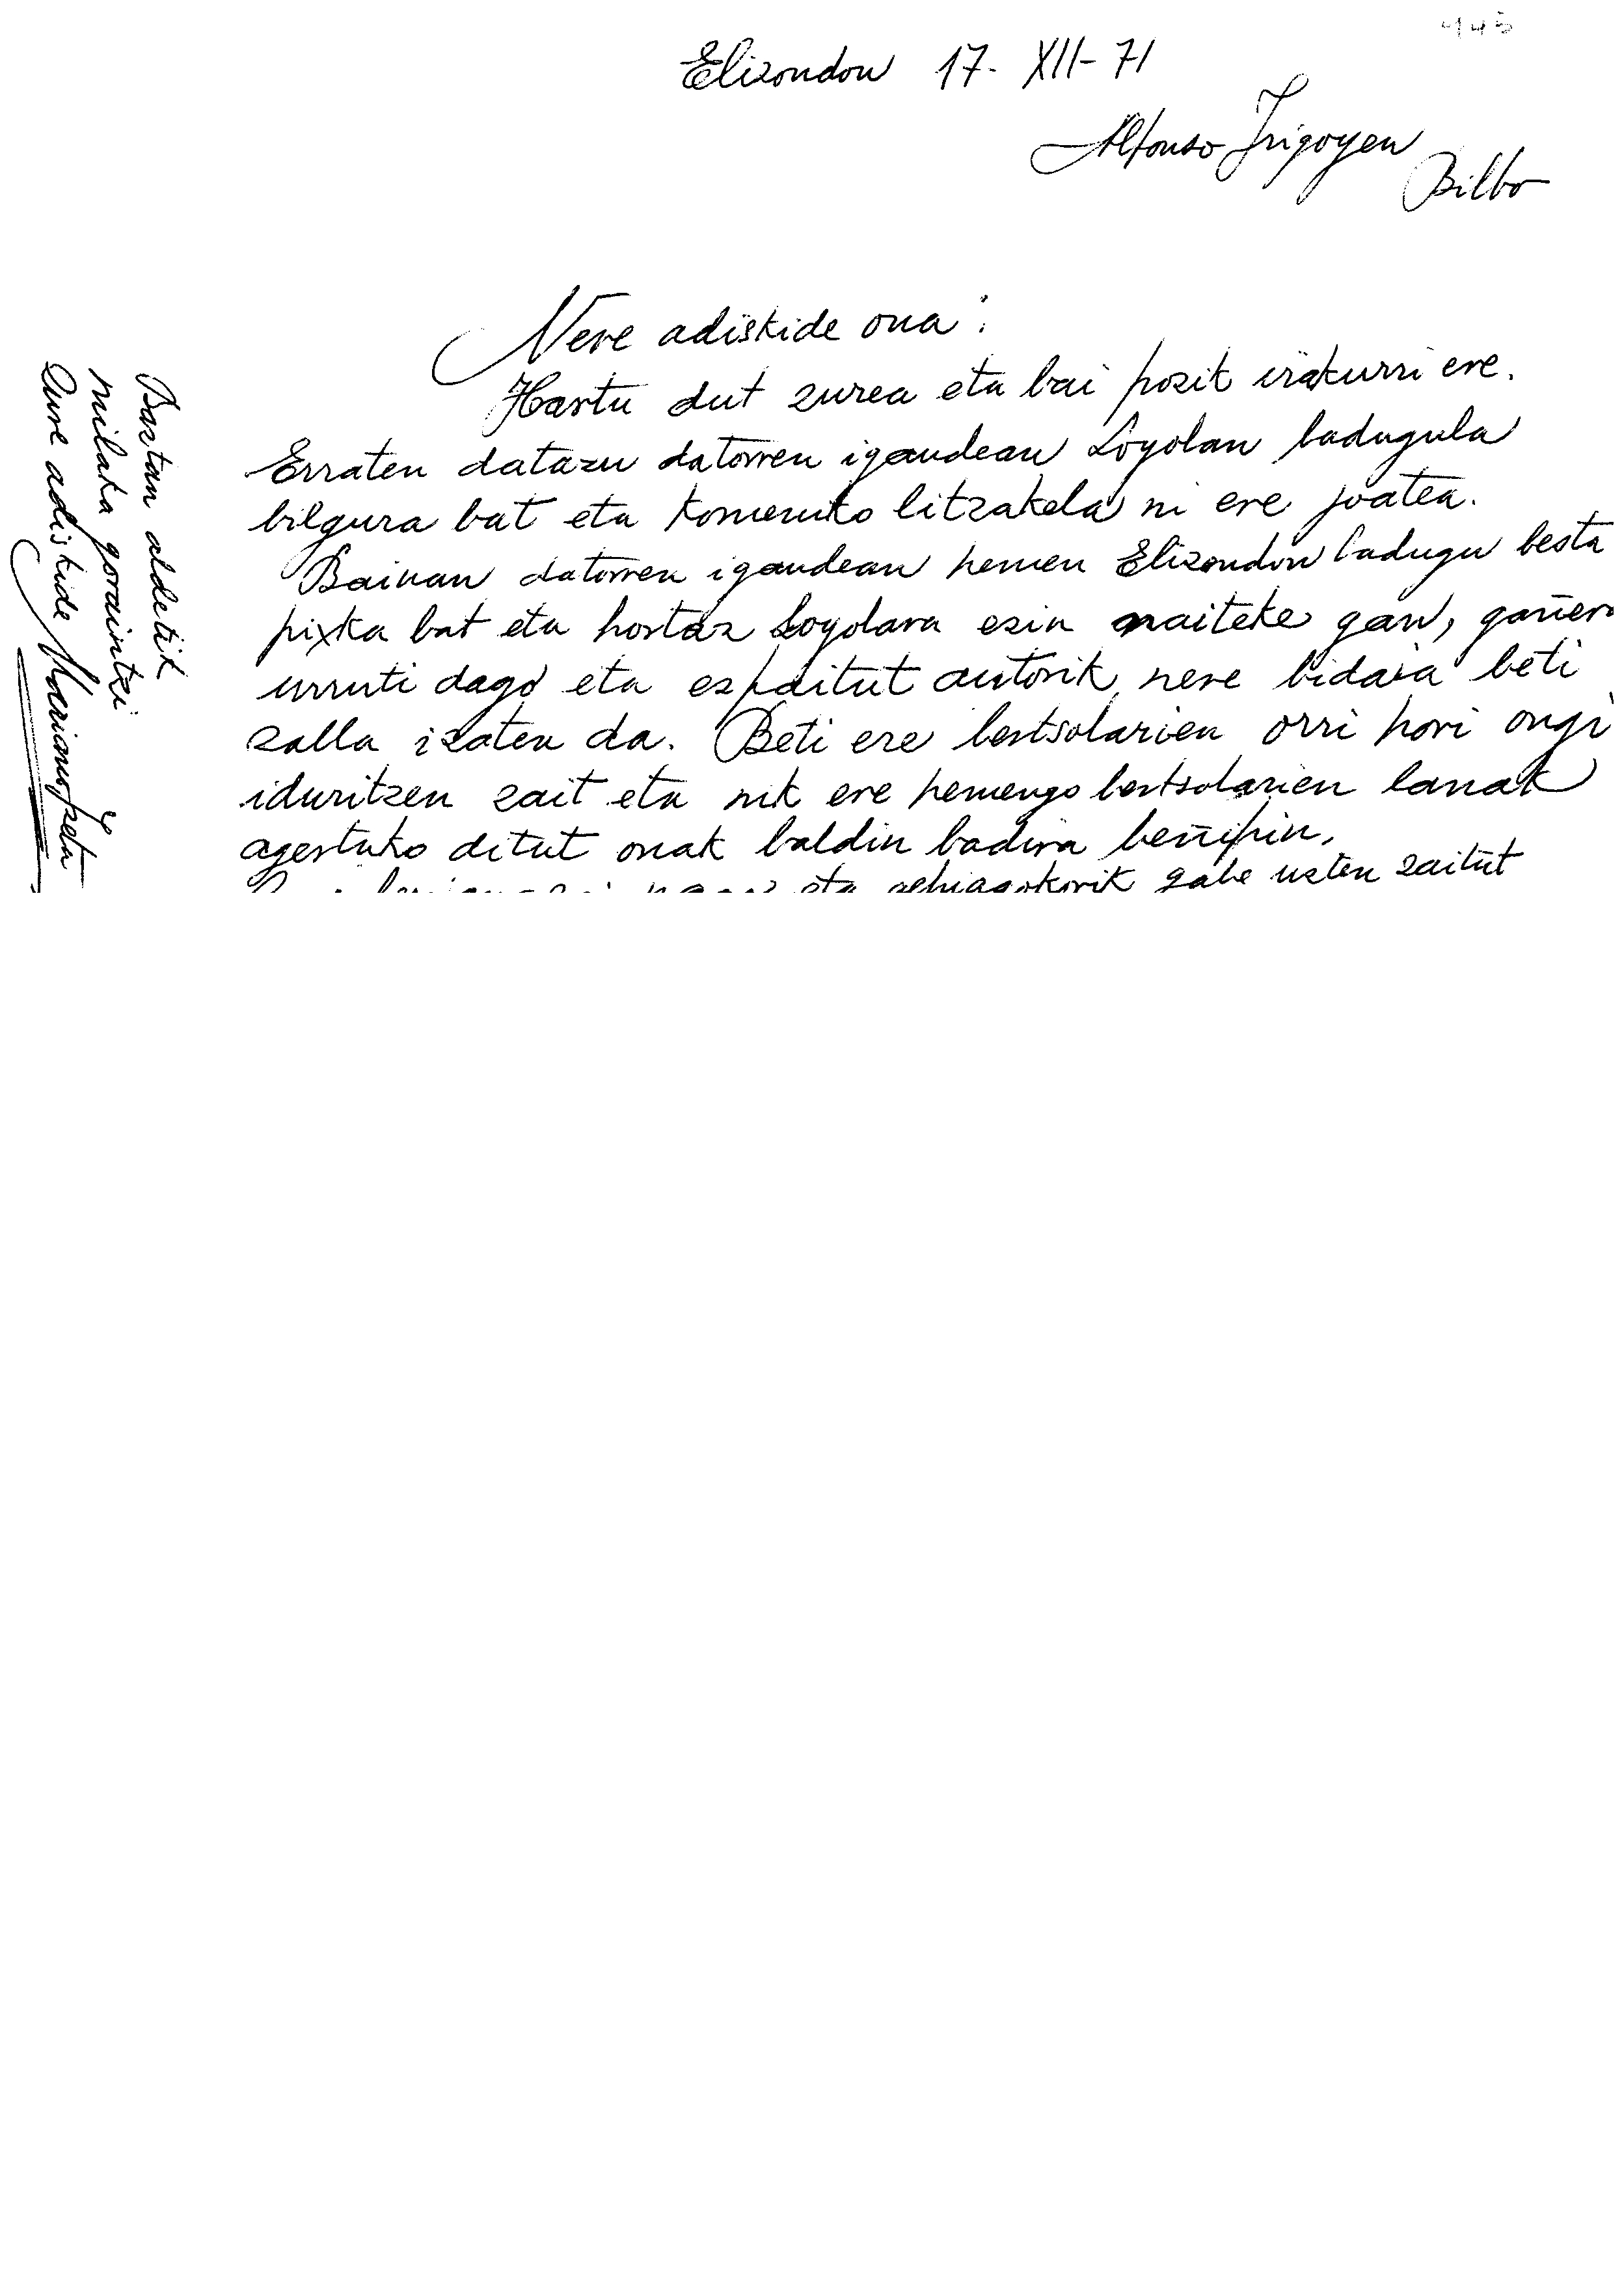 445
Elizondon 17- XII- 71
Alfonso Irigoyen
Bilbo
Nere adiskide ona:
Hartu dut zurea eta bai pozik irakurri ere.
Erraten datazu datorren igandean Loyolan badugula
bilgura bat eta komeniko litzakela ni ere joatea.
Bainan datorren igandean hemen Elizondon badugu besta
pixka bat eta hortaz Loyolara ezin naiteke gan, gañera
urruti dago eta ezpaitut autorik, nere bidaia beti
zalla izaten da. Beti ere bertsolarien orri hori ongi
iduritzen zait eta nik ere hemengo bertsolarien lanak
agertuko ditut onak baldin badira beñipin,
eta gehiagokorik gabe uzten zaitut
Baztan aldetik
milaka goraintzi
Zure adiskide Mariano Izeta